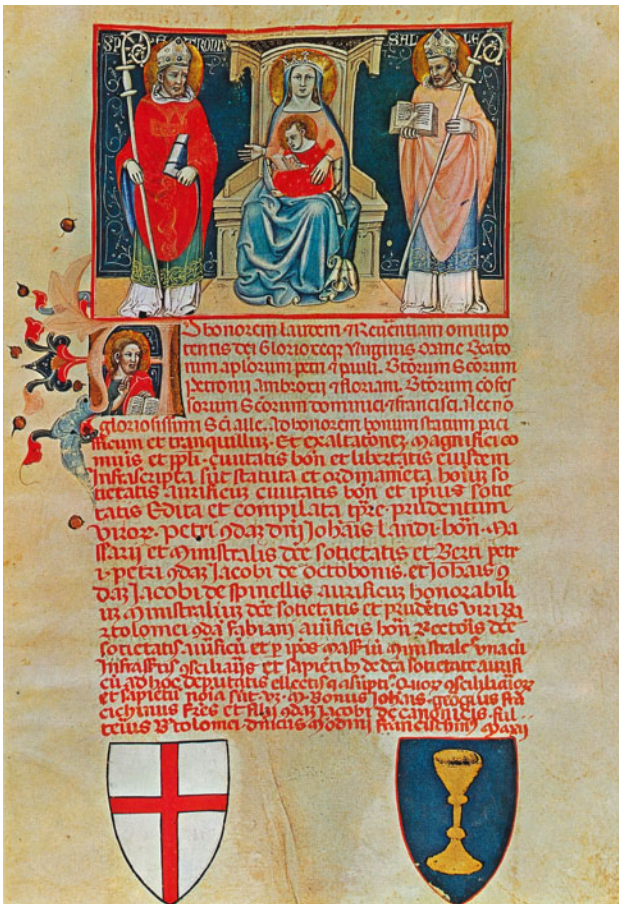 SP E TRONIV SAL LE
Ad honorem laudem & Reuerentiam omnipo
tentis dei Glorioseq; Virginis Marie Beato
rum aplorum petri & pauli. Btorum Scorum
Petronii ambroxii & floriani. Btorum cofes
sorum Scorum dominici & francisci. Necno
gloriosissimi Sci alle. Ad honorem bonum statum paci
ficum et tranquillum. Et exaltatonez magnifici co
munis et ppli ciuitatis bon et libertatis eiusdem
Infrascripta sut statuta et ordinameta hoium so
cietatis aurificum ciuitatis bon et ipius socie
tatis Edita et compilata tpre. prudentum
viror. petri qdaz dni Johais landi bon. Ma
ssarii et Ministralis dce societatis et Berti petr
i. petri qdaz Jacobi de octobonis. et Johais q
daz Jacobi de spinellis aurificum honorabili
um Ministralium dce societatis et prudetis viri Ba
rtolomei qda fabiani aurificis bon Rectois dce
societatis aurificu et p ipos massariu ministrale vnacu
Infrascptis et sapientib de dca societate aurifi
cu ad hoc deputatis ellectis q asuptis. Quor
et sapietu noia sut. vz. Bonus Johais. fra
cichinus fres et filii qdaz Jacobi de canonicis. fili
Btolomei. dnicus francischin